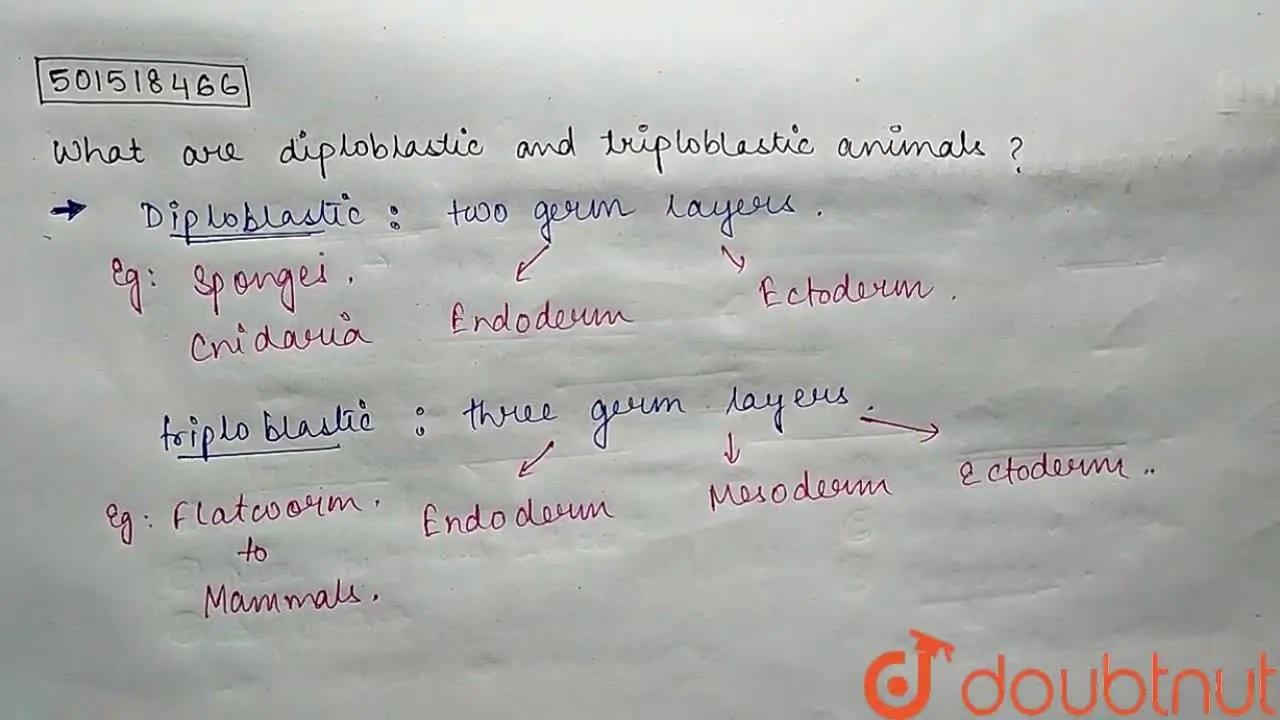 501518466
What are diploblastic and triploblastic animals ?
→ Diploblastic : two germ layers .
Eg : Sponges . Endoderm Ectoderm .
Cnidaria
triploblastic : three germ layers .
Eg : Flatworm . Endoderm Mesoderm Ectoderm ..
to
Mammals .
doubtnut